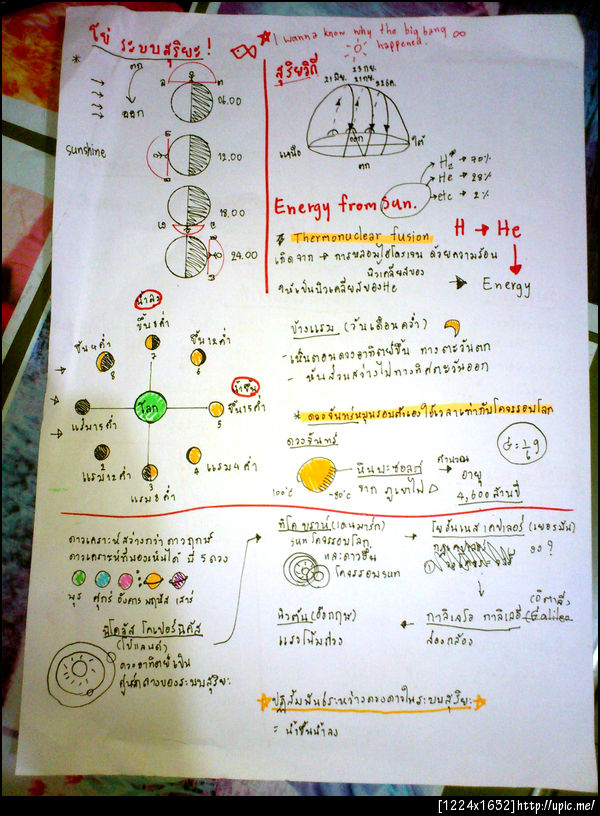 โย่ ระบบสุริยะ!
* I wanna know why the big bang
happened.
*
ตก
ออก
sunshine
06.00
12.00
18.00
24.00
สุริยวิถี
21 มิ.ย.
23 ก.ย.
21 มี.ค.
22 ธ.ค.
เหนือ
ออก
ใต้
ตก
H₂ → 70%
He → 28%
etc → 2%
Energy from Sun.
Thermonuclear fusion
H → He
เกิดจาก → การหลอมไฮโดรเจน ด้วยความร้อน
นิวเคลียสของ
ให้เป็นนิวเคลียสของ He
→ Energy
น้ำลง
ขึ้น 8 ค่ำ
ขึ้น 4 ค่ำ
ขึ้น 12 ค่ำ
8
7
6
น้ำขึ้น
โลก
ขึ้น 15 ค่ำ
5
แรม 15 ค่ำ
1
2
แรม 12 ค่ำ
3
แรม 8 ค่ำ
4 แรม 4 ค่ำ
ข้างแรม (วันเดือนคว่ำ)
- เห็นตอนดวงอาทิตย์ขึ้น ทางตะวันตก
- หันส่วนสว่างไปทางทิศตะวันออก
* ดวงจันทร์หมุนรอบตัวเองใช้เวลาเท่ากับโคจรรอบโลก
ดวงจันทร์
G = 1/6 g
100°c
-80°c
หินบะซอลต์
จาก ภูเขาไฟ
คำนวณ
อายุ
4,600 ล้านปี
ดาวเคราะห์สว่างกว่าดาวฤกษ์
ดาวเคราะห์ที่มองเห็นได้ มี 5 ดวง
พุธ ศุกร์ อังคาร พฤหัส เสาร์
นิโคลัส โคเปอร์นิคัส
(โปแลนด์)
ดวงอาทิตย์เป็น
ศูนย์กลางของระบบสุริยะ
ทิโค บราห์ (เดนมาร์ก)
sun โคจรรอบโลก
และดาวอื่น
โคจรรอบ sun
โยฮันเนส เคปเลอร์ (เยอรมัน)
กาลิเลโอ กาลิเลอี
(อิตาลี)
Galileo
ส่องกล้อง
นิวตัน (อังกฤษ)
แรงโน้มถ่วง
ปฏิสัมพันธ์ระหว่างดวงดาวในระบบสุริยะ
= น้ำขึ้นน้ำลง
[1224x1632]http://upic.me/